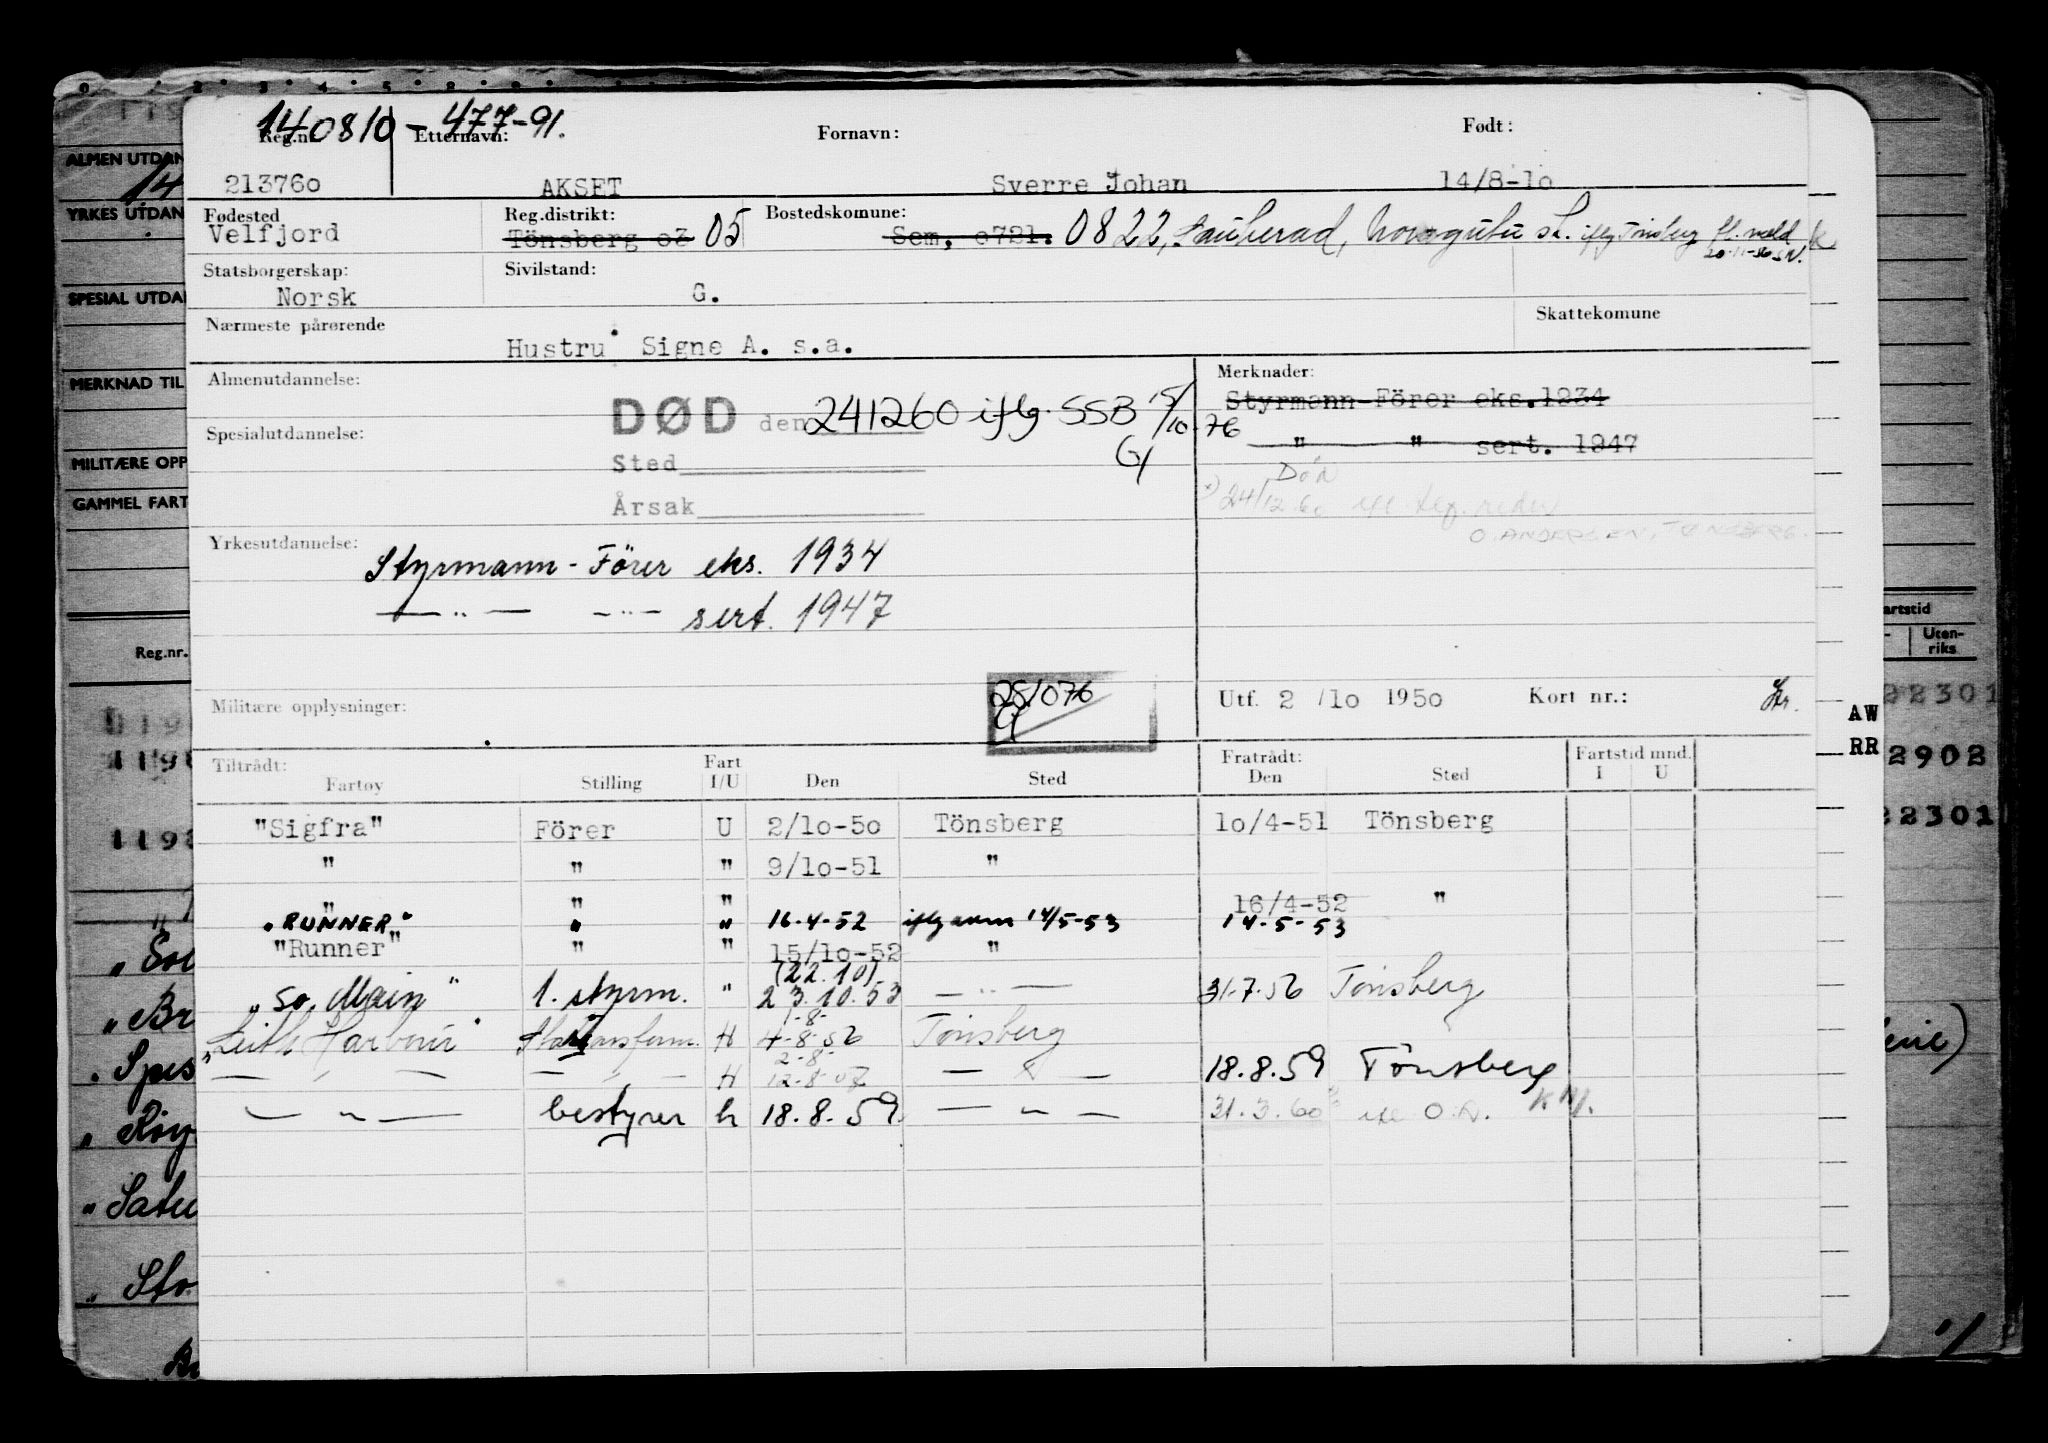 140810-477-91.
Reg.nr. Etternavn: Fornavn: Født:
213760 AKSET Sverre Johan 14/8-10
Fødested Reg.distrikt: Bostedskomune:
Velfjord Tönsberg o3 05 Sem, o721. 0822, Sauherad, iflg Tönsberg fl. meld
20-11-56 SN.
Statsborgerskap: Sivilstand:
Norsk G.
Nærmeste pårørende Skattekomune
Hustru Signe A. s.a.
Almenutdannelse: Merknader:
Styrmann-Förer eks.1934
DØD den 241260 iflg. SSB 15/10-76
G
Spesialutdannelse: " " sert. 1947
Sted
Død
x) 24/12.60 rederi
Årsak
O. ANDERSEN, TØNSBERG.
Yrkesutdannelse:
Styrmann - Förer eks. 1934
— " — - " - sert. 1947
281076
Militære opplysninger: Utf. 2 /10 1950 Kort nr.:
Tiltrådt: Fart Fratrådt: Fartstid mnd.
Fartøy Stilling I/U Den Sted Den Sted I U
"Sigfra" Förer U 2/10-50 Tönsberg 10/4-51 Tönsberg
" " " 9/10-51 "
" " " 16/4-52 "
"RUNNER" " " 16-4-52 iflg 14/5-53 14-5-53
"Runner" " " 15/10-52 "
(22.10)
"So. Main" 1. styrm. " 23.10.53 — " — 31-7-56 Tönsberg
1-8-
"Leith Harbour" H 4-8-56 Tönsberg
2-8-
— " — — " — H 12-8-57 — " — 18.8.59 Tönsberg
— " — bestyrer h 18.8.59. — " — 31.3.60 O.A.
ALMEN UTDAN
14
YRKES UTDAN
SPECIAL UTDAN
MERKNAD TIL
MILITÆRE OPP
GAMMEL FART
Reg.nr.
artstid
Uten-
riks
22301
AW
RR
2902
22301